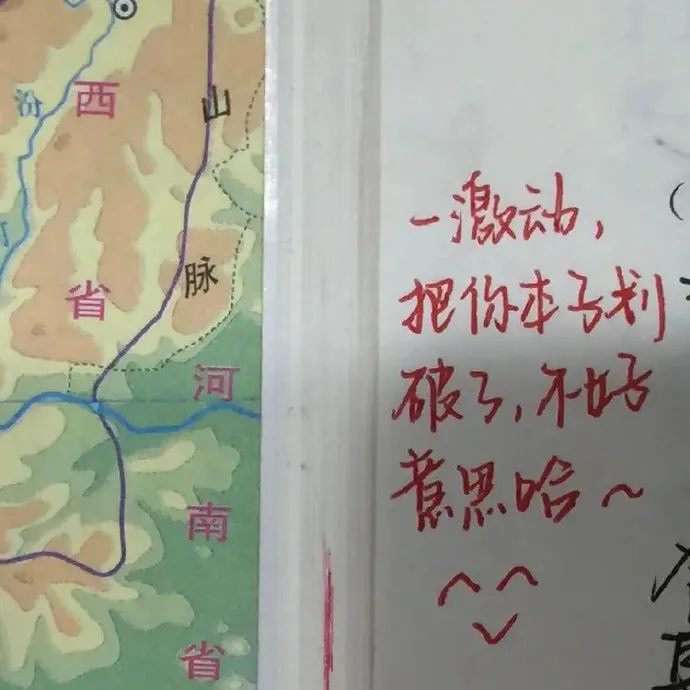 汾
西
山
脉
省
河
南
省
一激动，
把你本子划
破了，不好
意思哈～